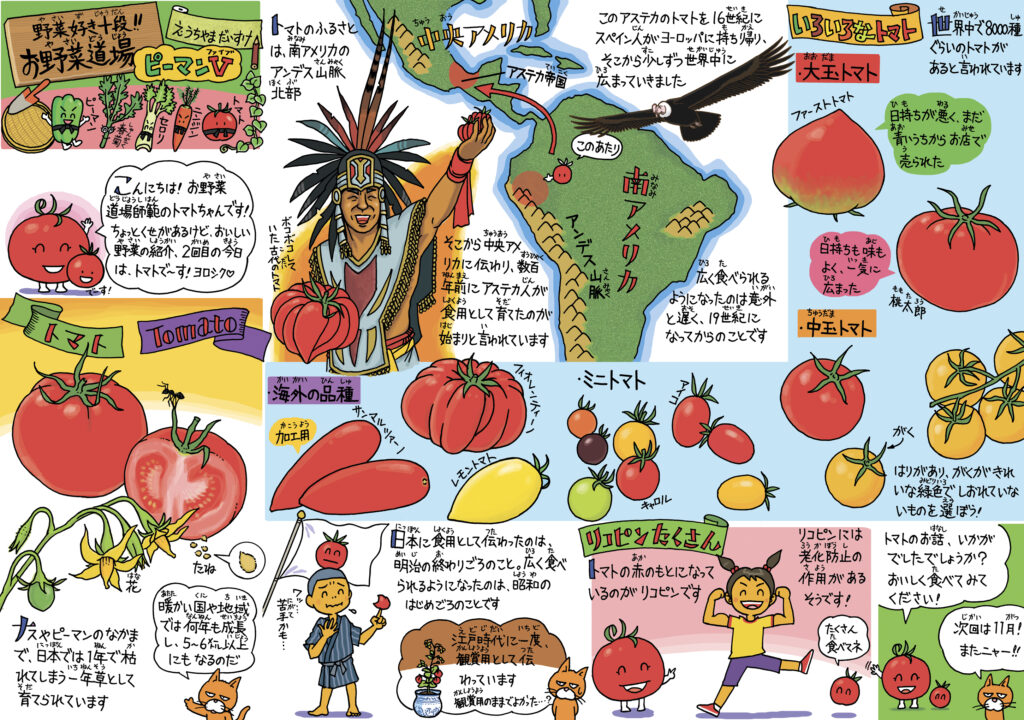 野菜好き十段!!
お野菜道場
えうちやまだいすけ
ピーマンV
ファイブ
ピーマン
春菊
セロリ
ニンジン
トマト
こんにちは! お野菜
道場師範のトマトちゃんです!
ちょっとくせがあるけど、おいしい
野菜の紹介、2回目の今日
は、トマトでーす! ヨロシク♡
でーす!
トマト
Tomato
たね
花
ナスやピーマンのなかま
で、日本では1年で枯
れてしまう一年草として
育てられています
暖かい国や地域
では何年も成長
し、5〜6m以上
にもなるのだ
トマトのふるさと
は、南アメリカの
アンデス山脈
北部
中央アメリカ
アステカ帝国
このあたり
南アメリカ
アンデス山脈
ボコボコして
いた古代トマト
そこから中央アメ
リカに伝わり、数百
年前にアステカ人が
食用として育てたのが
始まりと言われています
このアステカのトマトを16世紀に
スペイン人がヨーロッパに持ち帰り、
そこから少しずつ世界中に
広まっていきました
広く食べられる
ようになったのは意外
と遅く、19世紀に
なってからのことです
いろいろなトマト
世界中で8000種
ぐらいのトマトが
あると言われています
・大玉トマト
ファーストトマト
日持ちが悪く、まだ
青いうちからお店で
売られた
日持ちも味も
よく、一気に
広まった
桃太郎
・中玉トマト
がく
はりがあり、がくがきれ
いな緑色でしおれていな
いものを選ぼう!
・海外の品種
加工用
サンマルツァーノ
フィオレンティーノ
レモントマト
・ミニトマト
アイコ
キャロル
日本に食用として伝わったのは、
明治の終わりごろのこと。広く食べ
られるようになったのは、昭和の
はじめごろのことです
ワッ…
にがて
苦手かも…
江戸時代に一度、
観賞用として伝
わっています
観賞用のままでよかった…?
リコピンたくさん
トマトの赤のもとになって
いるのがリコピンです
リコピンには
老化防止の
作用がある
そうです!
たくさん
食べてネ
トマトのお話、いかが
でしたでしょうか?
おいしく食べてみて
ください!
次回は11月!
またニャー!!